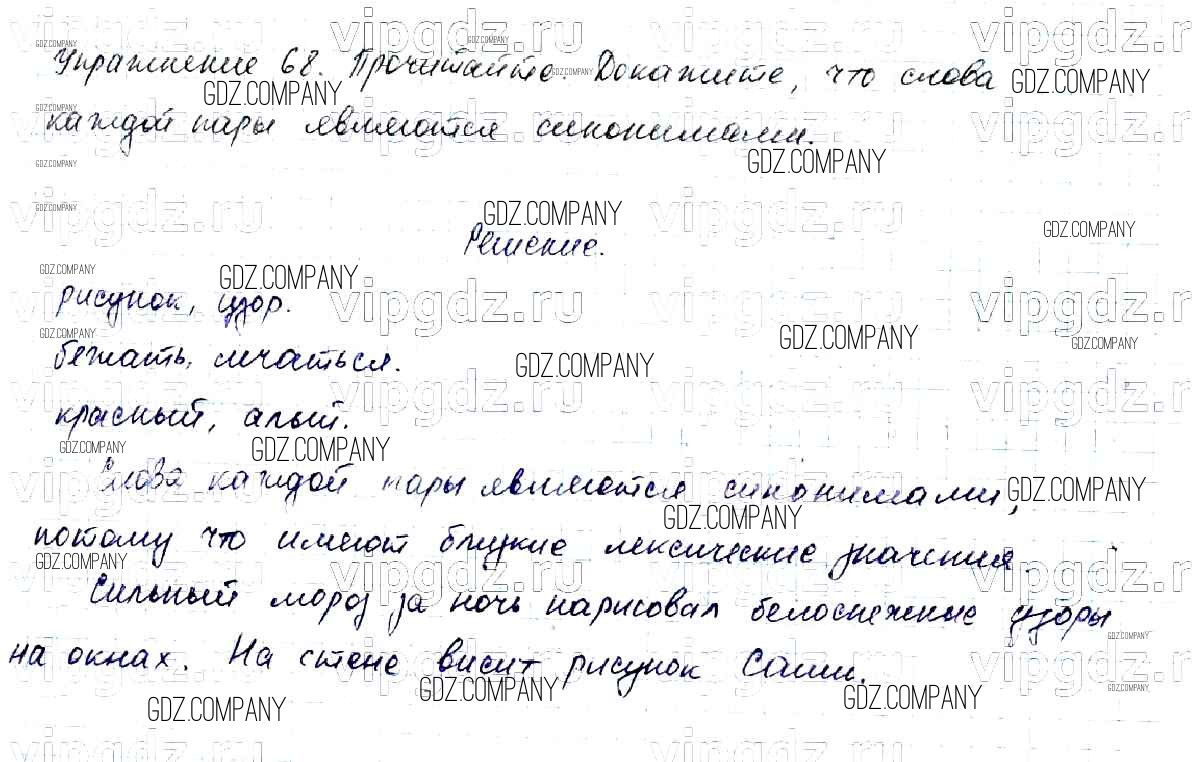 Упражнение 68. Прочитайте. Докажите, что слова
каждой пары являются синонимами.
Решение.
рисунок, узор.
бежать, мчаться.
красный, алый.
Слова каждой пары являются синонимами,
потому что имеют близкие лексические значения
Сильный мороз за ночь нарисовал белоснежные узоры
на окнах. На стене висит рисунок Саши.